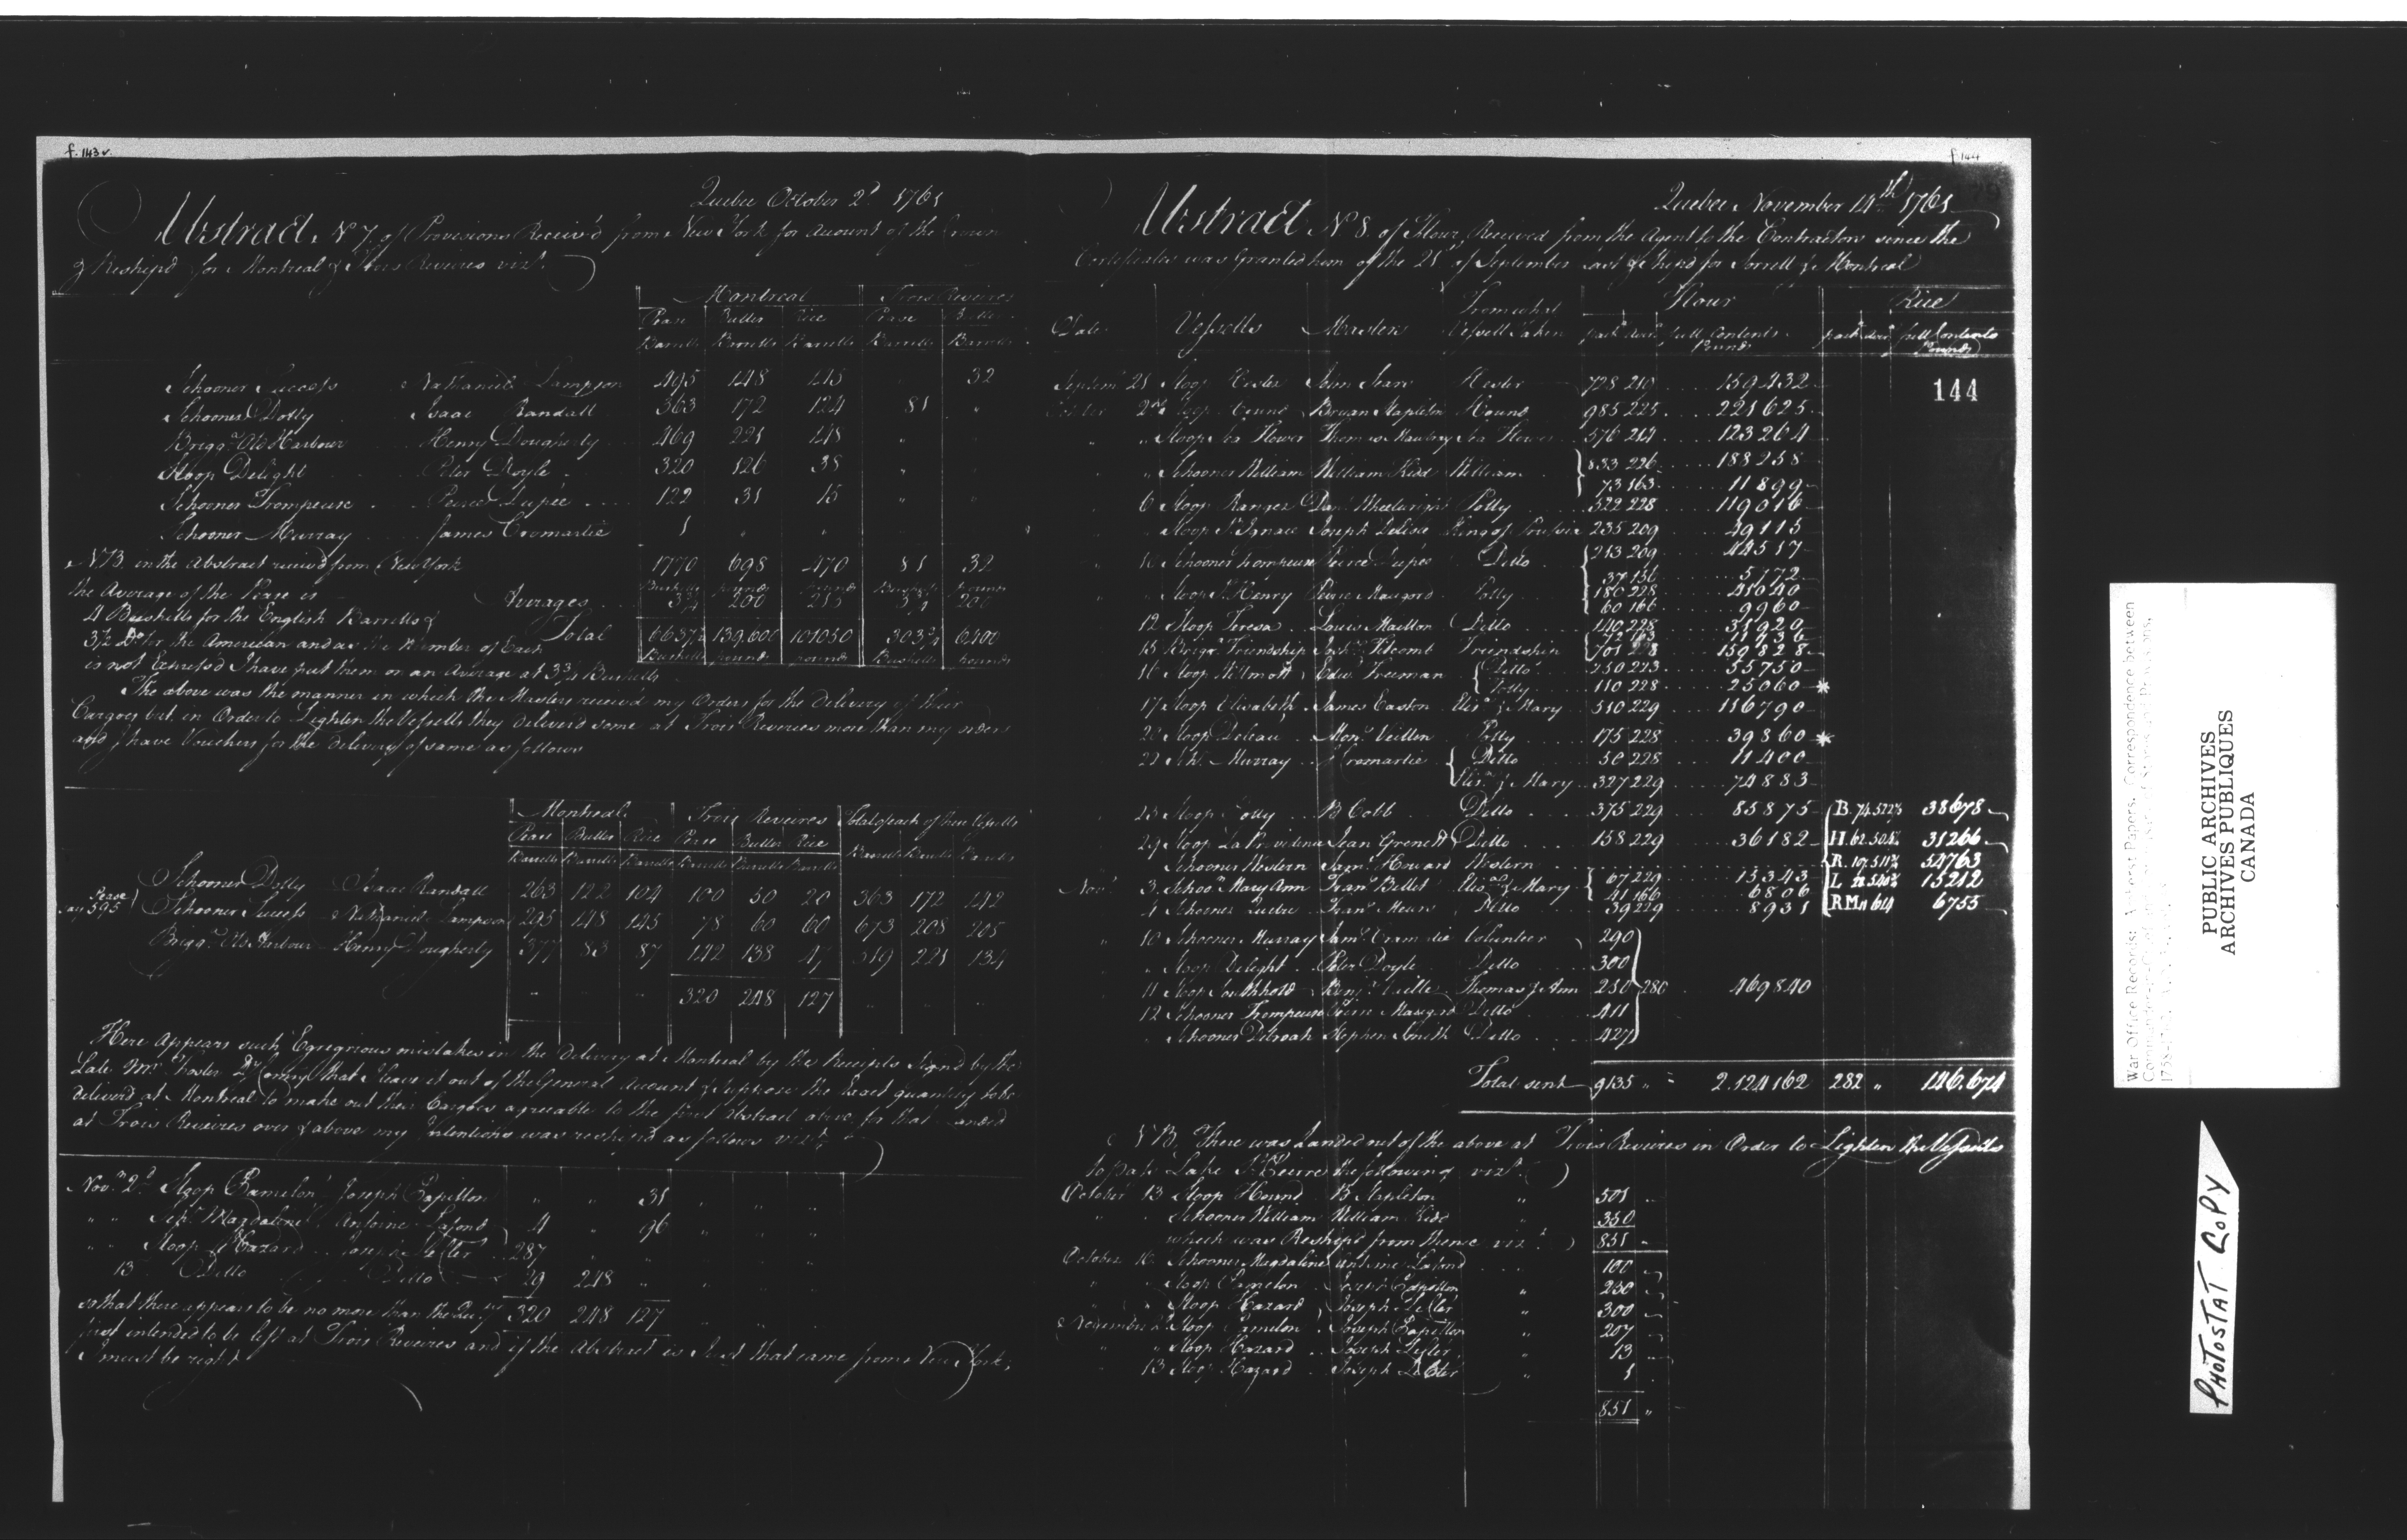 f. 143 v.
Quebec October 2d 1761
Abstract No 7. of Provisions Received from New York for Account of the Crown
& Reshipd for Montreal & Trois Reveires vizt.
Montreal Trois Reveires
Pease Butter Rice Pease Butter
Barrells Barrells Barrells Barrells Barrells
Schooner Success Nathaniel Lampson 495 148 145 32
Schooner Dolly Isaac Randall 363 172 124 81 "
Brigg. Old Harbour Henry Dougherty 469 221 148 " "
Sloop Delight Peter Doyle 320 126 38 " "
Schooner Trompeuse Peirce Dupée 122 31 15 " "
Schooner Murray James Cromartie 1 " "
NB. in the Abstract receivd from New York 1770 698 470 81 32
the Average of the Pease is Bushells pounds pounds Bushells pounds
4 Bushells for the English Barrells & Averages 3¾ 200 215 3¾ 200
3½ Do for the American and as the Number of Each Total 6637½ 139,600 101050 303¾ 6400
is not Expressd I have put them on an Average at 3¾ Bushells Bushells pounds pounds Bushells pounds
The above was the manner in which the Masters receivd my Orders for the delivery of their
Cargoes but in Order to Lighten the Vessells they deliverd some at Trois Reveires more than my orders
and I have Vouchers for the delivery of same as follows
Montreal Trois Reveires Total of each of these Vessells
Pease Butter Rice Pease Butter Rice
Barrells Barrells Barrells Barrells Barrells Barrells Barrells Barrells Barrells
Schooner Dolly Isaac Randall 263 122 104 100 50 20 363 172 142
Pease 595 Schooner Success Nathaniel Lampson 295 148 145 78 60 60 673 208 205
Brigg. Old Harbour Henry Dougherty 377 83 87 142 138 47 519 221 134
" " " 320 248 127 " " "
Here appears such Egregrious mistakes in the delivery at Montreal by the Receipts Signd by the
Late Mr. Foster Dy Comry that I leave it out of the General Account & Suppose the Exact quantity to be
deliverd at Montreal to make out their Cargoes agreeable to the first Abstract above, for that Landed
at Trois Reveires over & above my Intentions was reshipd as follows vizt.
Novm 2d Sloop Camelon Joseph Papillon " " 31 " " "
" " Schr Magdalene Antoine Lafond 4 " 96 " " "
" " Sloop Hazard Joseph Lesler 287 " " "
13 Ditto Ditto 29 248 " " "
so that there appears to be no more than the 320 248 127
first intended to be left at Trois Reveires and if the Abstract is Just that came from New York,
I must be right
f 144
Quebec November 14th 1761
Abstract No 8. of Flour, Received from the Agent to the Contractors since the
Certificates was Granted him of the 21st of September Last & Shipd for Sorrell & Montreal
Date Vessells Masters From what Vessell Taken Flour Rice
full Contents Pounds full Contents Pounds
Septemr 21 Sloop Hester John Sears Hester 728 219 159432
144
October 2nd Sloop Hound Bryan Stapleton Hound 985 225 221625
" " Sloop Sea Flower Thomas Sea Flower 576 214 123264
" Schooner William William Kidd William 833 226 188258
73 163 11899
6 Sloop Ranger Danl Wheelwright Polly 522 228 119016
" Sloop St Ignace Joseph Delisle King of Prussia 235 209 49115
10 Schooner Trompeuse Peirce Dupée Ditto 213 209 44517
37 156 5772
" Sloop St Henry Pierre Maugard Polly 180 228 41040
60 166 9960
12 Sloop Teresa Louis Mailton Ditto 140 228 31920
72 163 11736
15 Brigg Friendship Titcomb Friendship 701 228 159828
16 Sloop Wilmott Edwd Freeman Ditto 250 223 55750
Polly 110 228 25060 *
17 Sloop Elisabeth James Easton Elisa & Mary 510 229 116790
20 Sloop Monr Polly 175 228 39860 *
22 Schr. Murray J Cromartie Ditto 50 228 11400
Elisa & Mary 327 229 74883
23 Sloop Polly B Cobb Ditto 375 229 85875 B. 74.522⅔ 38678
29 Sloop La Providence Jean Grenett Ditto 158 229 36182 H. 62.504 31266
Schooner Western Saml Howard Western R. 107.511 54763
Novr 3 Schoor Mary Ann Frans Bellet Elisa & Mary 67 229 15343 L 28.540 15212
41 166 6806
4 Schooner Quebec Frans Ditto 39 229 8931 R M 11 614 6755
" 10 Schooner Murray Jams Cramatie Volunteer 290
" Sloop Delight Peter Doyle Ditto 300
11 Sloop Southhold Benj. Thomas & Ann 250 280 469840
12 Schooner Trompeuse Peirre Maugard Ditto 411
" Schooner Deborah Stephen Smith Ditto 427
Total sent 9135 " 2.124162 282 " 146.674
NB. There was Landed out of the above at Trois Reveires in Order to Lighten the Vessells
to pass Lake St Peirre the following vizt.
October 13 Sloop Hound B Stapleton " 501
" Schooner William William Kidd " 350
which was Reshipd from thence vizt. 851
October 16 Schooner Magdaline Antoine Lafond 100
" " Sloop Camelon Joseph Papillon " 230
" Sloop Hazard Joseph Lesler " 300
November 2d Sloop Camelon Joseph Papillon " 207
" " Sloop Hazard Joseph Lesler " 13
" 13 Sloop Hazard Joseph Lesler " 1
851 "
War Office Records: Amherst Papers, Correspondence between
PUBLIC ARCHIVES
ARCHIVES PUBLIQUES
CANADA
PHOTOSTAT COPY